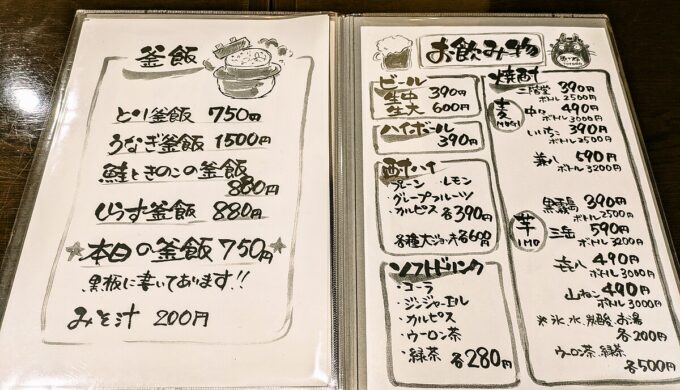 釜飯
とり釜飯 750円
うなぎ釜飯 1500円
鮭ときのこの釜飯
880円
しらす釜飯 880円
★本日の釜飯 750円
黒板に書いてあります!!
みそ汁 200円
お飲み物
ビール
生中 390円
生大 600円
ハイボール
390円
酎ハイ
・プレーン ・レモン
・グレープフルーツ
・カルピス 各390円
各種大ジョッキ各600円
ソフトドリンク
・コーラ
・ジンジャーエール
・カルピス
・ウーロン茶
・緑茶 各280円
焼酎
麦 MUGI
二階堂 390円
ボトル2500円
中々 490円
ボトル3000円
いいちこ 390円
ボトル2500円
兼八 590円
ボトル3200円
芋 IMO
黒霧島 390円
ボトル2500円
三岳 590円
ボトル3200円
㐂八 490円
ボトル3000円
山ねこ 490円
ボトル3000円
氷、水、炭酸、お湯
各200円
ウーロン茶、緑茶
各500円